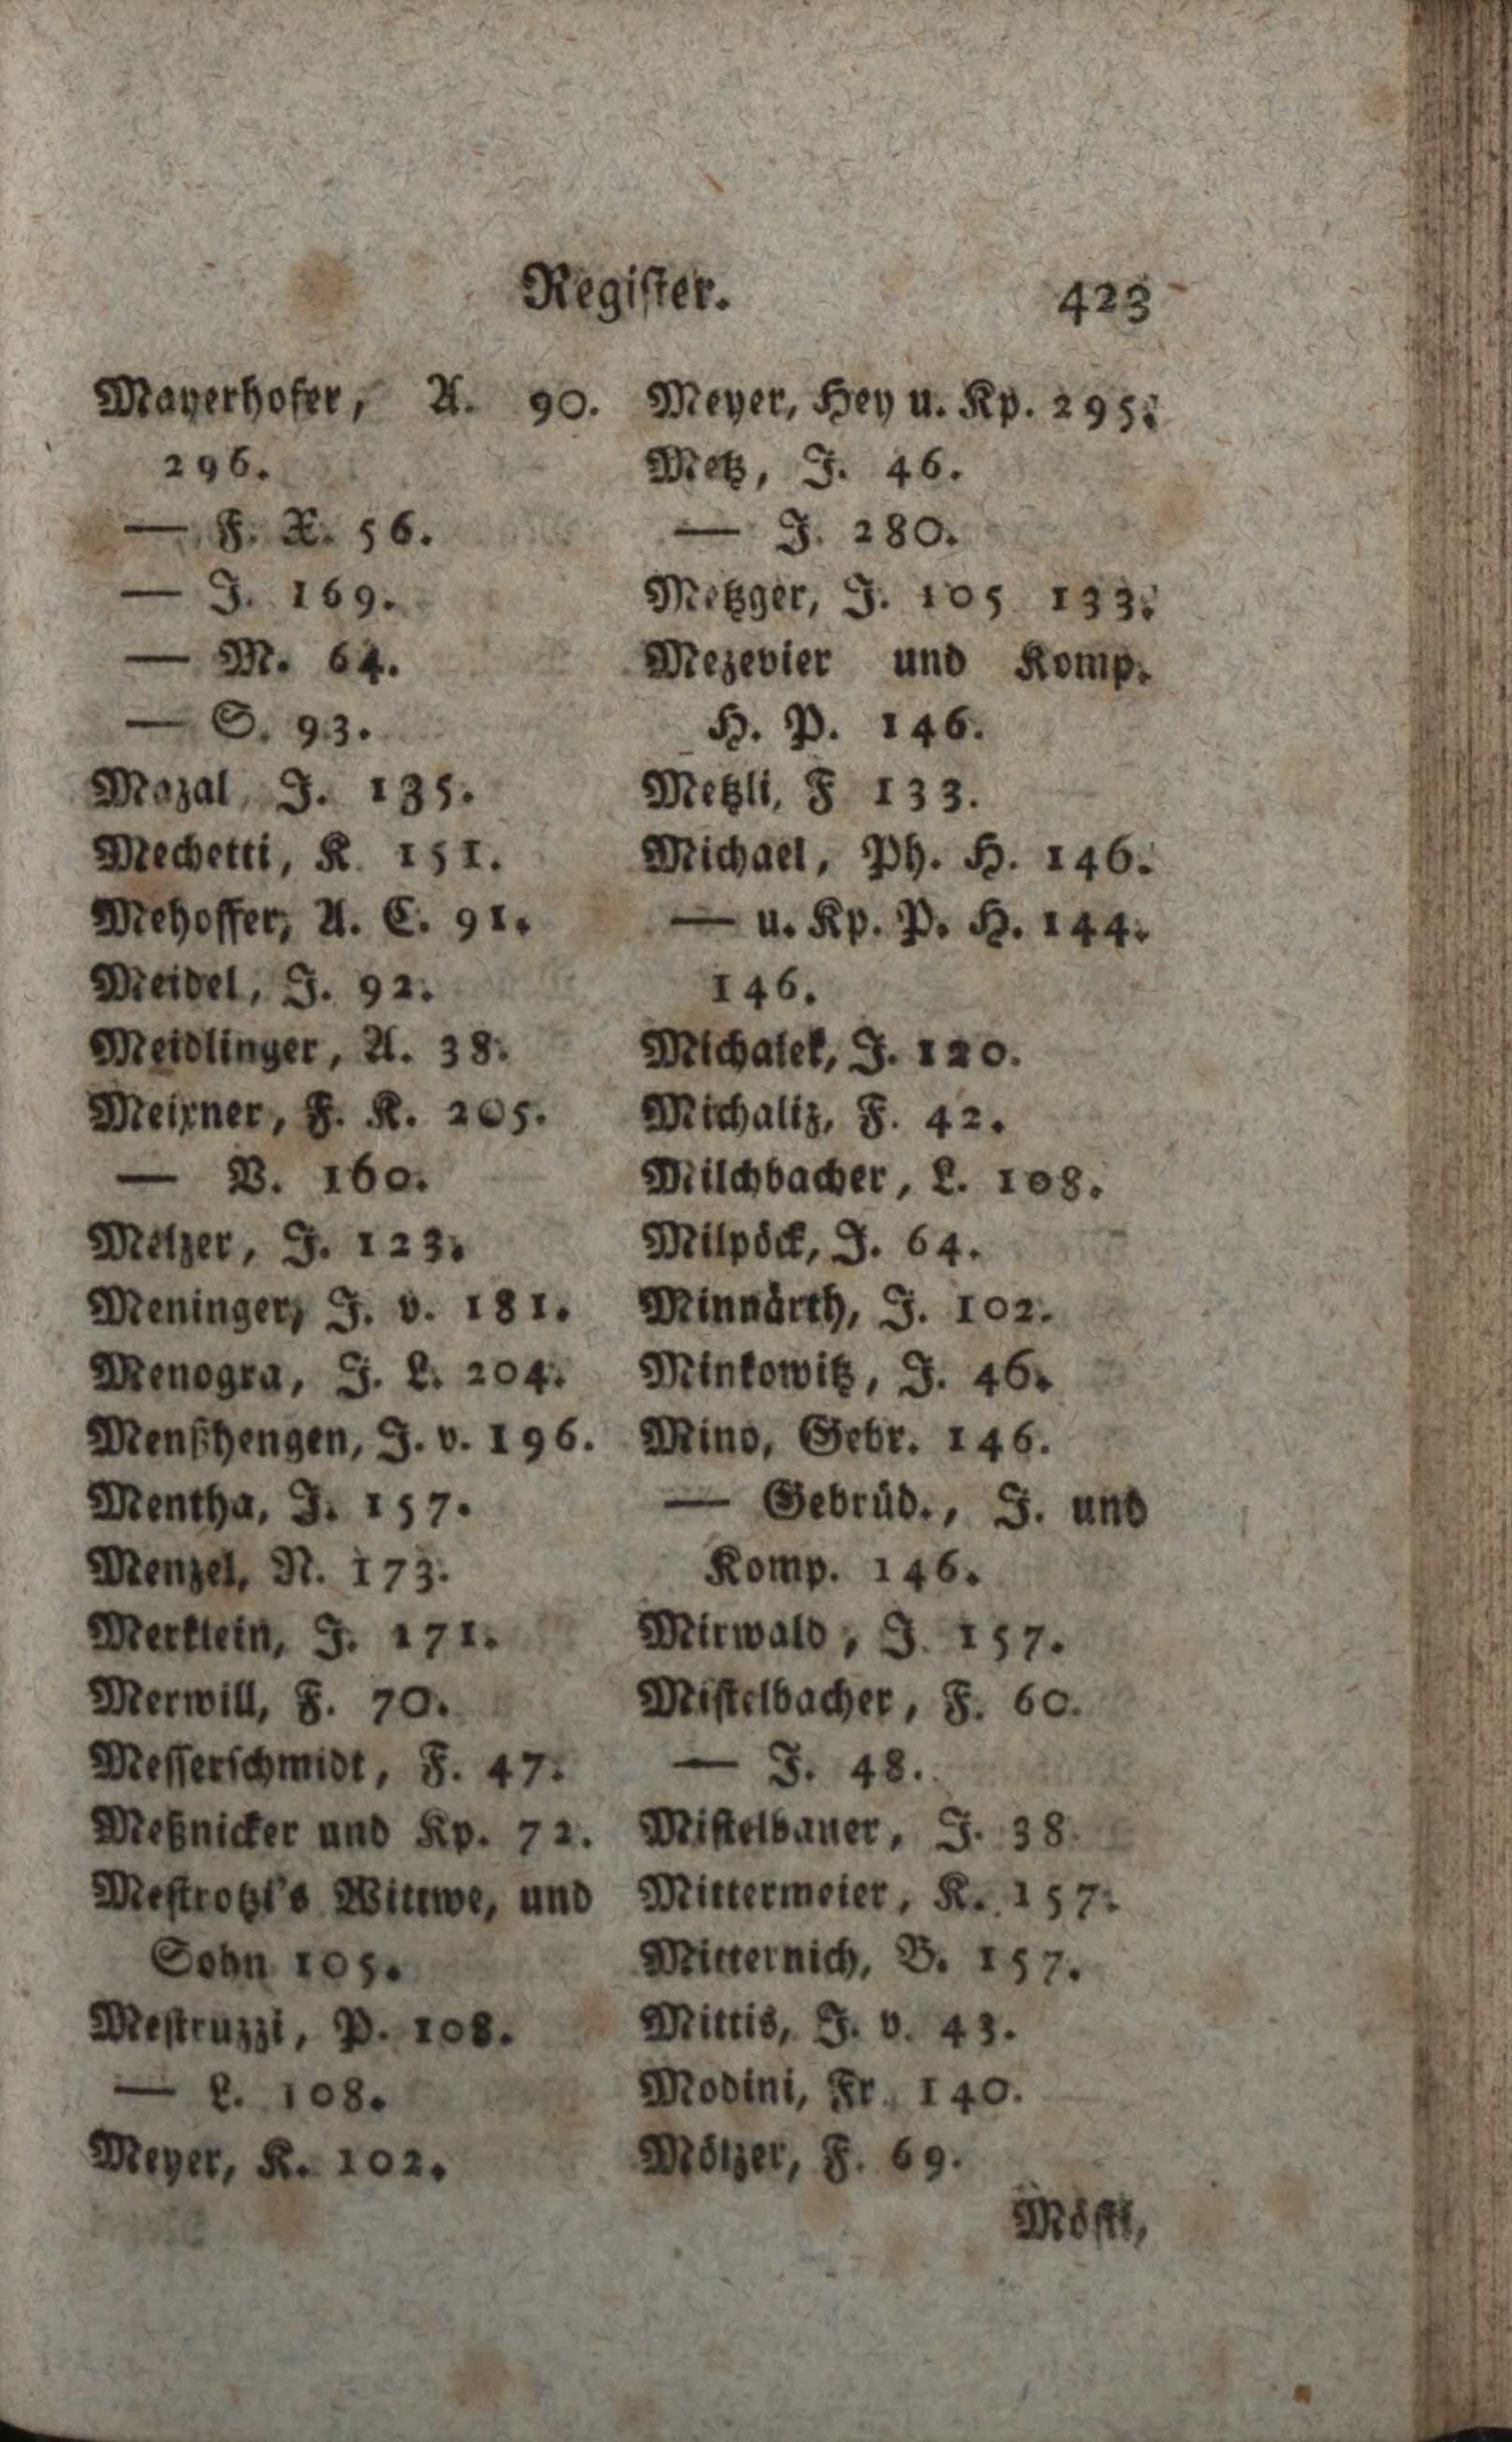 Register. 423
Mayerhofer, A. 90.
296.
— F. X. 56.
— J. 169.
— M. 64.
— S. 93.
Mazal, J. 135.
Mechetti, K. 151.
Mehoffer, A. C. 91.
Meidel, J. 92.
Meidlinger, A. 38.
Meixner, F. K. 205.
— V. 160.
Melzer, J. 123.
Meninger, J. v. 181.
Menogra, J. L. 204.
Menßhengen, J. v. 196.
Mentha, J. 157.
Menzel, N. 173.
Merklein, J. 171.
Merwill, F. 70.
Messerschmidt, F. 47.
Meßnicker und Kp. 72.
Mestrotzi's Wittwe, und
Sohn 105.
Mestruzzi, P. 108.
— L. 108.
Meyer, K. 102.
Meyer, Hey u. Kp. 295.
Metz, J. 46.
— J. 280.
Metzger, J. 105 133.
Mezevier und Komp.
H. P. 146.
Metzli, F 133.
Michael, Ph. H. 146.
— u. Kp. P. H. 144.
146.
Michalek, J. 120.
Michaliz, F. 42.
Milchbacher, L. 108.
Milpöck, J. 64.
Minnärth, J. 102.
Minkowitz, J. 46.
Mino, Gebr. 146.
— Gebrüd., J. und
Komp. 146.
Mirwald, J. 157.
Mistelbacher, F. 60.
— J. 48.
Mistelbauer, J. 38
Mittermeier, K. 157.
Mitternich, B. 157.
Mittis, J. v. 43.
Modini, Fr. 140.
Mölzer, F. 69.
Möstl,